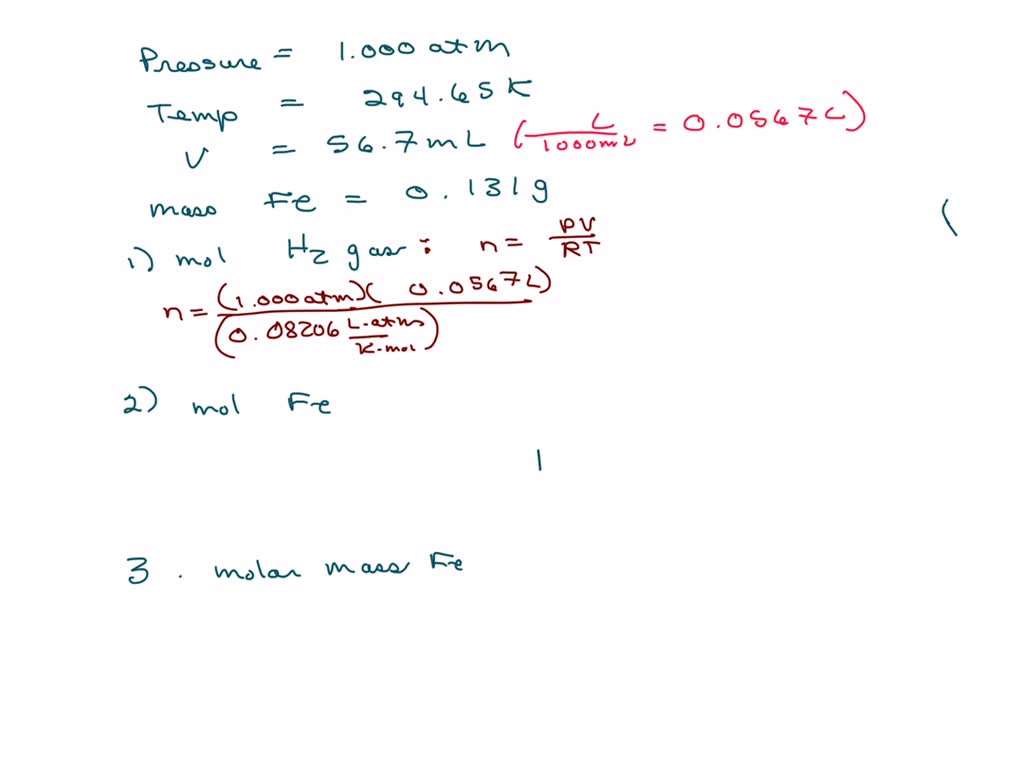 Pressure = 1.000 atm
Temp = 294.65 K
V = 56.7 mL (L/1000mL = 0.0567 L)
mass Fe = 0.131 g
(
1) mol H2 gas : n = PV/RT
n = (1.000 atm)( 0.0567 L)/(0.08206 L-atm/K-mol)
2) mol Fe
1
3 . molar mass Fe